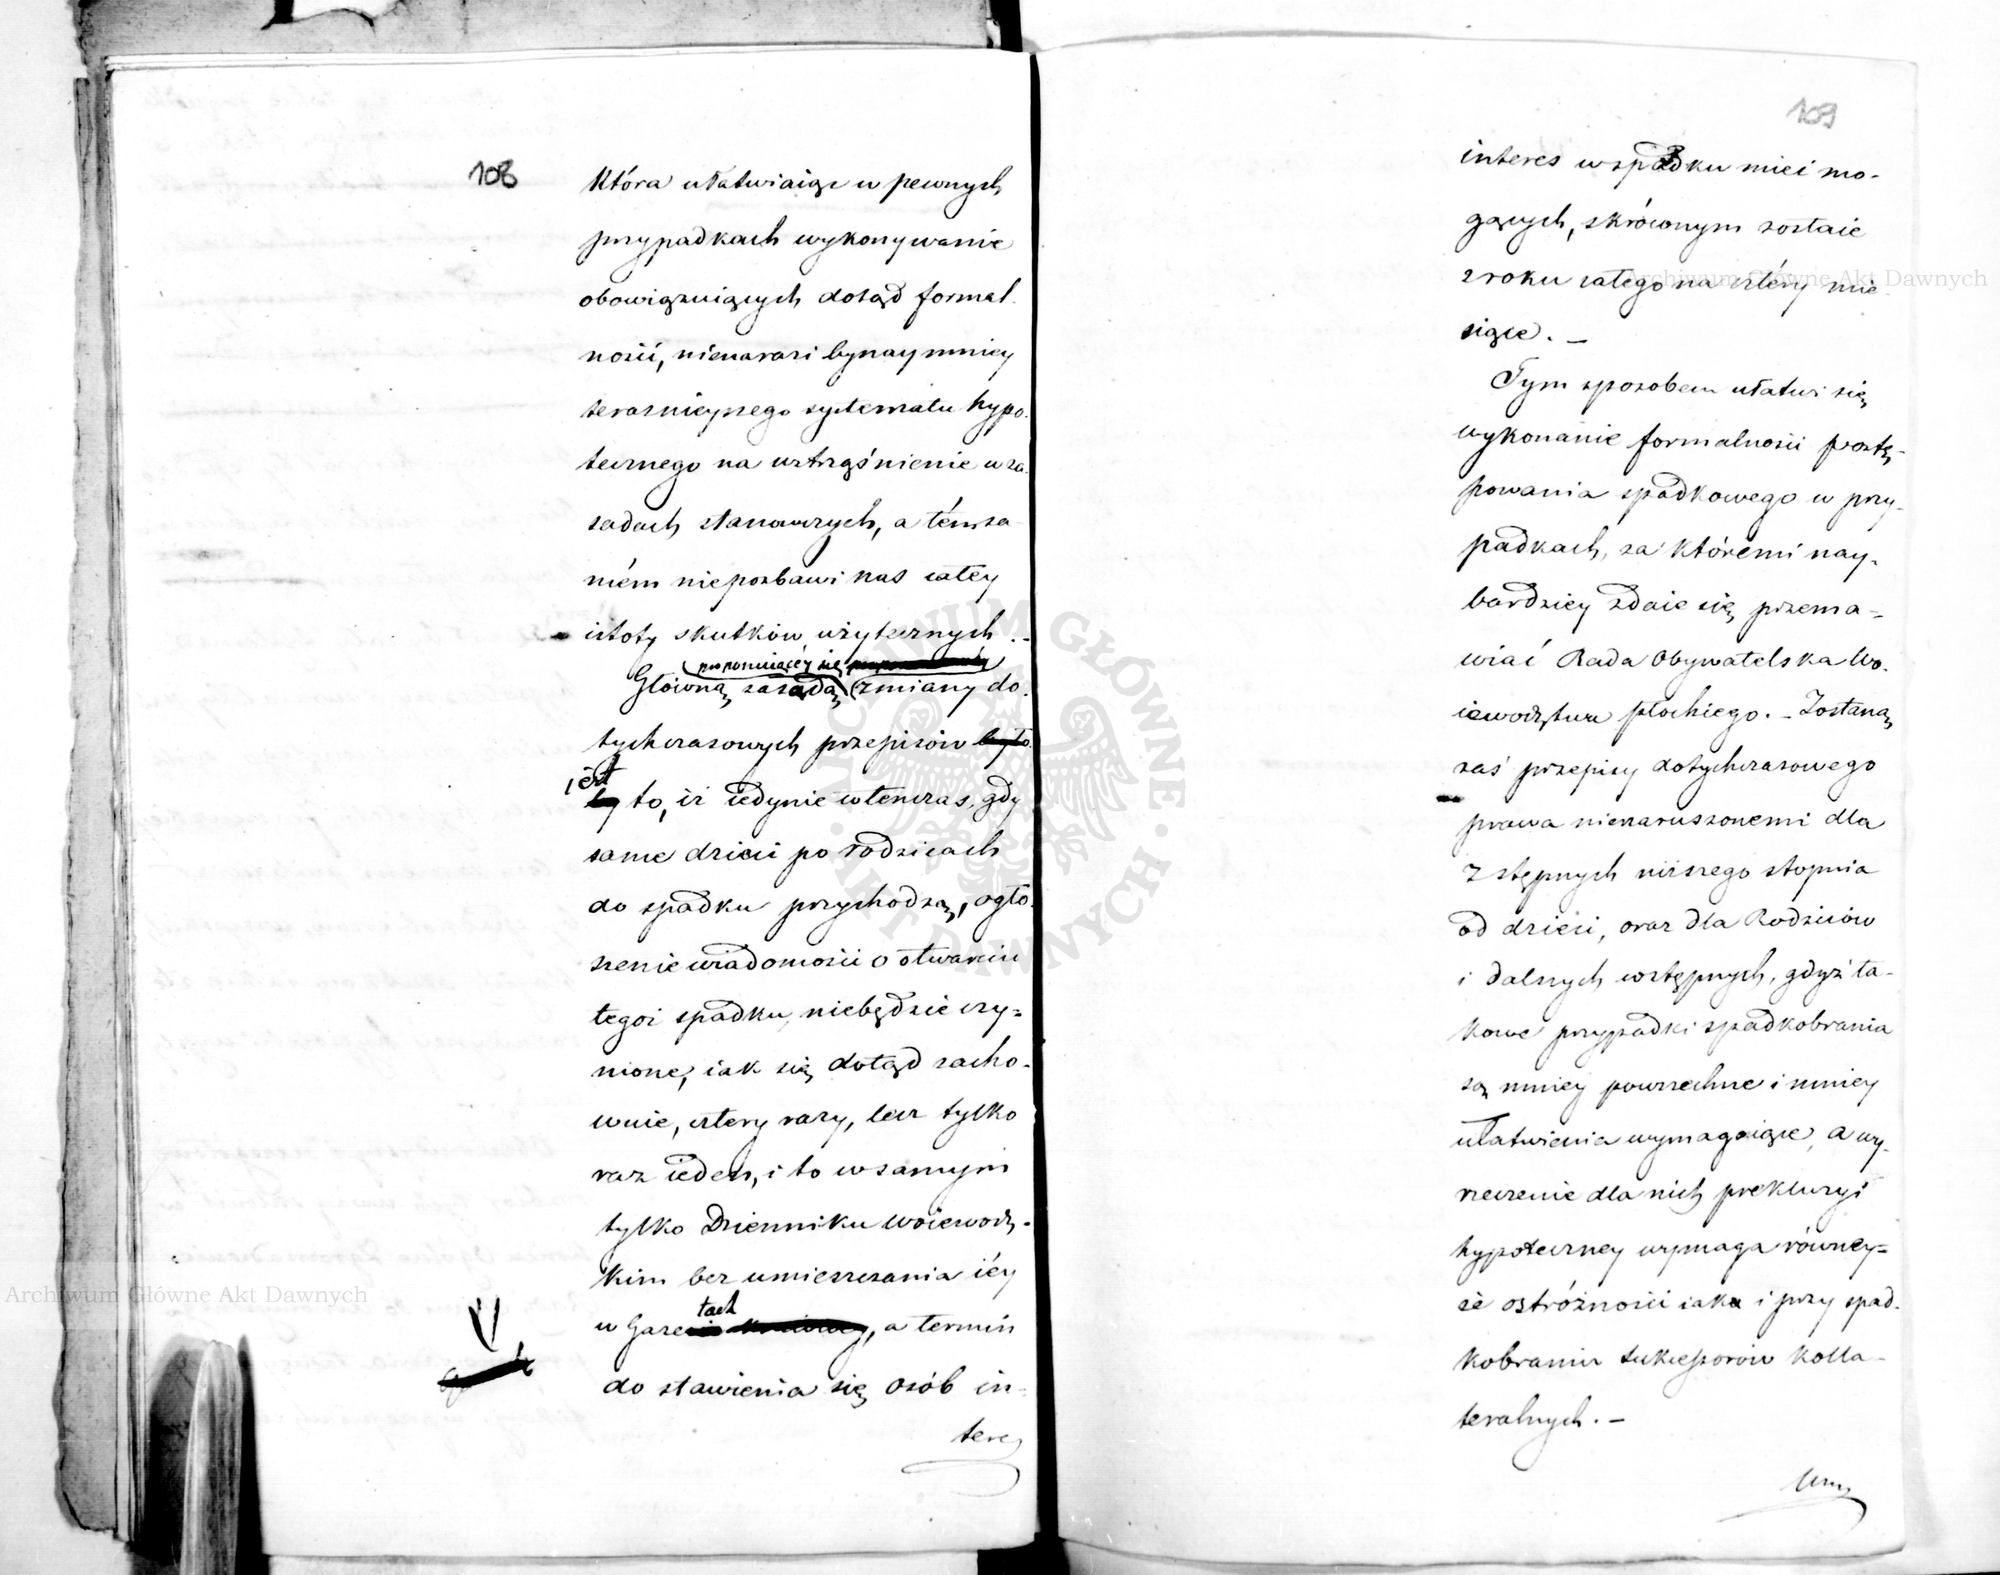 108
która ułatwiaiąc w pewnych
przypadkach wykonywanie
obowiązuiących dotąd formal-
ności, nienarazi bynaymniey
teraznieyszego systematu hypo-
tecznego na wstrząśnienie w za-
sadach stanowczych, a tém sa-
mém niepozbawi nas całey
istoty skutków użytecznych. -
proponuiącéy się
Główną zasadą zmiany do-
tychczasowych przepisów było-
iest
by to, iż iedynie wtenczas, gdy
same dzieci po rodzicach
do spadku przychodzą, ogło-
szenie wiadomości o otwarciu
tegoż spadku, niebędzie czy-
nione, iak się dotąd zacho-
wuie, cztery razy, lecz tylko
raz ieden, i to w samym
tylko Dzienniku Woiewódz-
kim bez umieszczania iéy
tach
w Gaze, a termin
do stawienia się osób in-
teres
109
interes w spadku mieć mo-
gących, skróconym zostaie
z roku całego na cztéry mie-
siące. -
Tym sposobem ułatwi się
wykonanie formalności postę-
powania spadkowego w przy-
padkach, za któremi nay-
bardziey zdaie się przema-
wiać Rada Obywatelska Wo-
iewództwa płockiego. - Zostaną
zaś przepisy dotychczasowego
prawa nienaruszonemi dla
zstępnych niższego stopnia
od dzieci, oraz dla Rodziców
i dalszych wstępnych, gdyż ta-
kowe przypadki spadkobrania
są mniey powszechne i mniey
ułatwienia wymagaiące, a wy-
rzeczenie dla nich prekluzyi
hypoteczney wymaga równey-
że ostróżności iak i przy spad-
kobraniu sukcessorów kolla-
teralnych. -
Archiwum Główne Akt Dawnych
Archiwum Główne Akt Dawnych
ARCHIWUM GŁÓWNE · AKT DAWNYCH ·